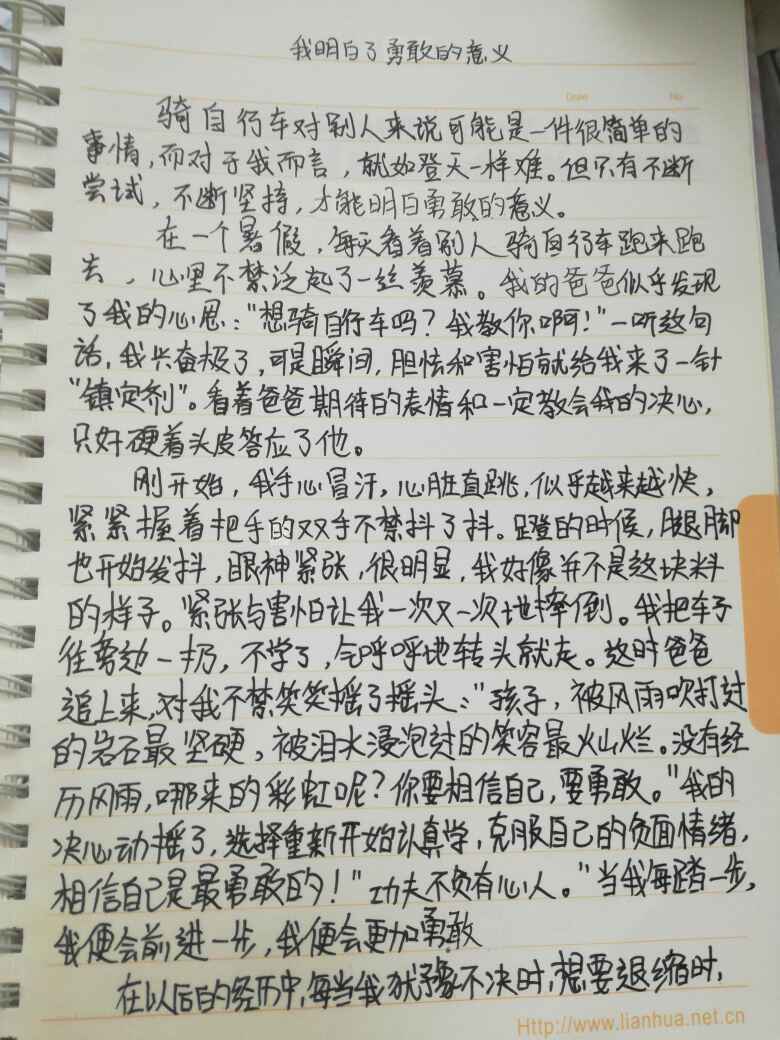 我明白了勇敢的意义
Date No
骑自行车对别人来说可能是一件很简单的
事情,而对于我而言,就如登天一样难。但只有不断
尝试,不断坚持,才能明白勇敢的意义。
在一个暑假,每天看着别人骑自行车跑来跑
去,心里不禁泛起了一丝羡慕。我的爸爸似乎发现
了我的心思:"想骑自行车吗?我教你啊!"一听这句
话,我兴奋极了,可是瞬间,胆怯和害怕就给我来了一针
"镇定剂"。看着爸爸期待的表情和一定教会我的决心,
只好硬着头皮答应了他。
刚开始,我手心冒汗,心脏直跳,似乎越来越快,
紧紧握着把手的双手不禁抖了抖。蹬的时候,腿脚
也开始发抖,眼神紧张,很明显,我好像并不是这块料
的样子。紧张与害怕让我一次又一次地摔倒。我把车子
往旁边一扔,不学了,气呼呼地转头就走。这时爸爸
追上来,对我不禁笑笑摇了摇头:"孩子,被风雨吹打过
的岩石最坚硬,被泪水浸泡过的笑容最灿烂。没有经
历风雨,哪来的彩虹呢?你要相信自己,要勇敢。"我的
决心动摇了,选择重新开始认真学,克服自己的负面情绪,
相信自己是最勇敢的!"功夫不负有心人。"当我每踏一步,
我便会前进一步,我便会更加勇敢
在以后的经历中,每当我犹豫不决时,想要退缩时,
Http://www.lianhua.net.cn